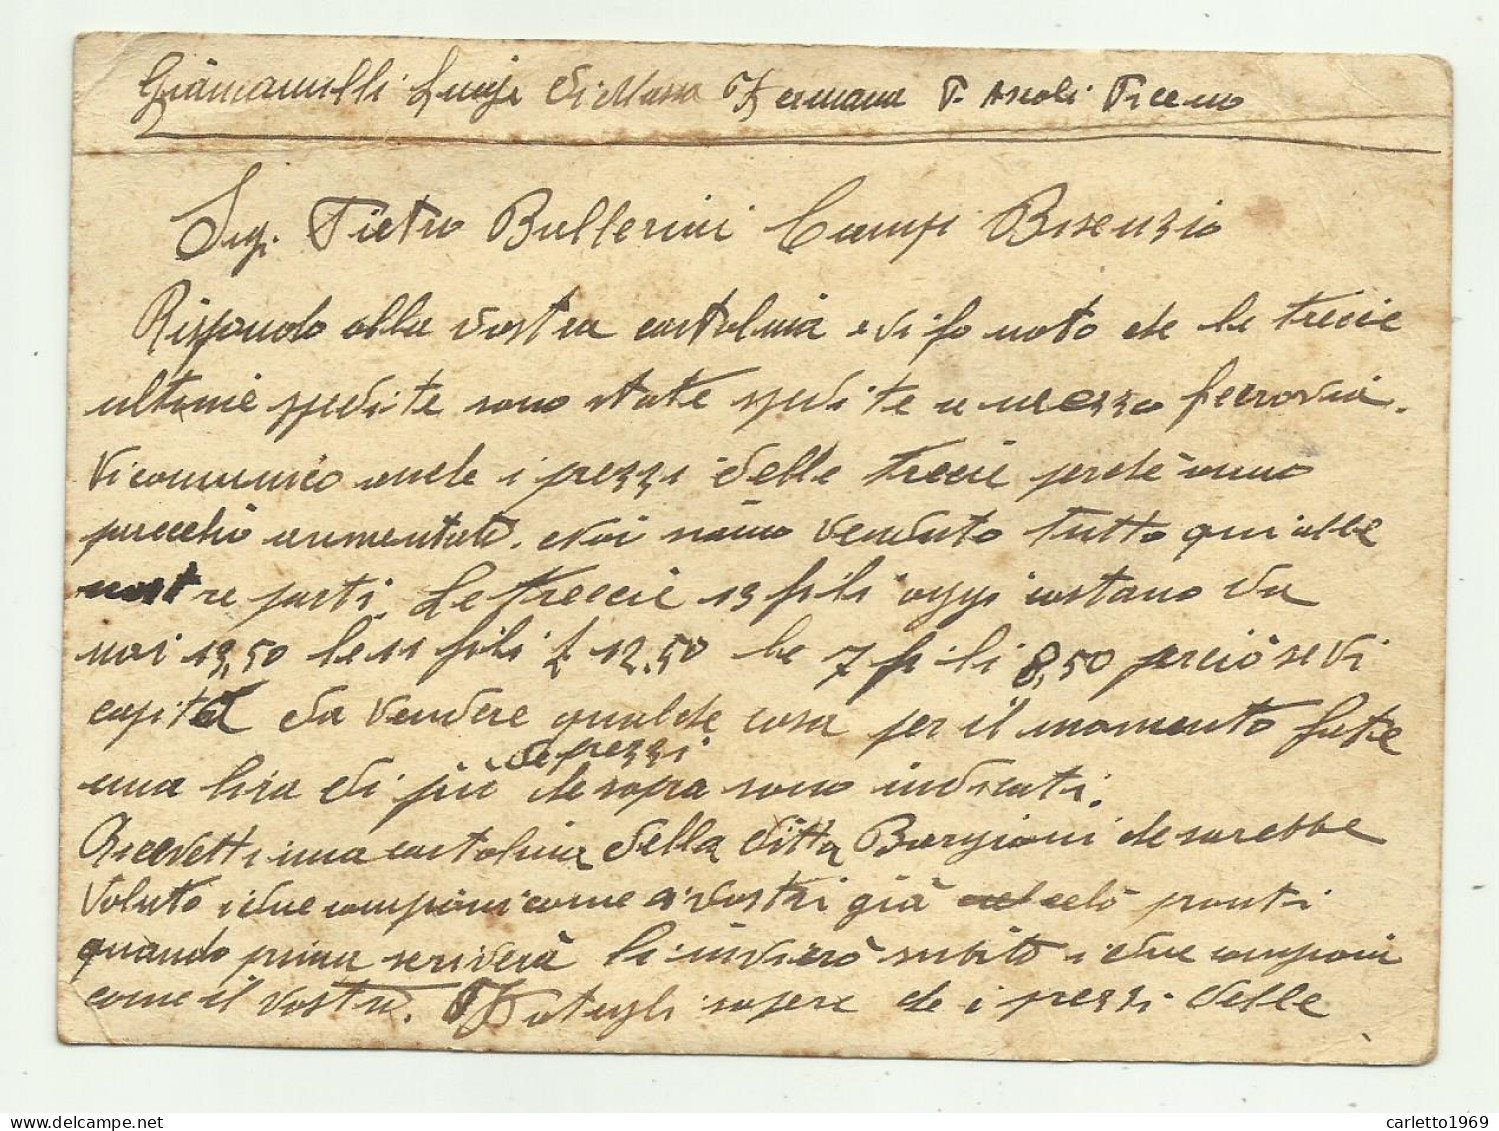 Giannarelli Luigi di Massa Fermana P. Ascoli Piceno
Sig. Pietro Ballerini Campi Bisenzio
Rispondo alla vostra cartolina e vi fo noto che le treccie
ultime spedite sono state spedite a mezzo ferrovia.
Vi comunico anche i prezzi delle treccie perchè anno
parecchio aumentato. Noi siamo venduto tutto qui alle
nostre parti. Le treccie 13 fili oggi costano da
noi 13,50 le 11 fili £ 12.50 le 7 fili 8,50 perciò se vi
capita da vendere qualche cosa per il momento fate
una lira di più de prezzi
che sopra sono indicati.
Ricevetti una cartolina della ditta Bargioni che sarebbe
voluto i due campioni come i vostri già celò pronti
quando prima scriverà li invierò subito i due campioni
come il vostro. Fategli sapere che i prezzi delle
carletto1969